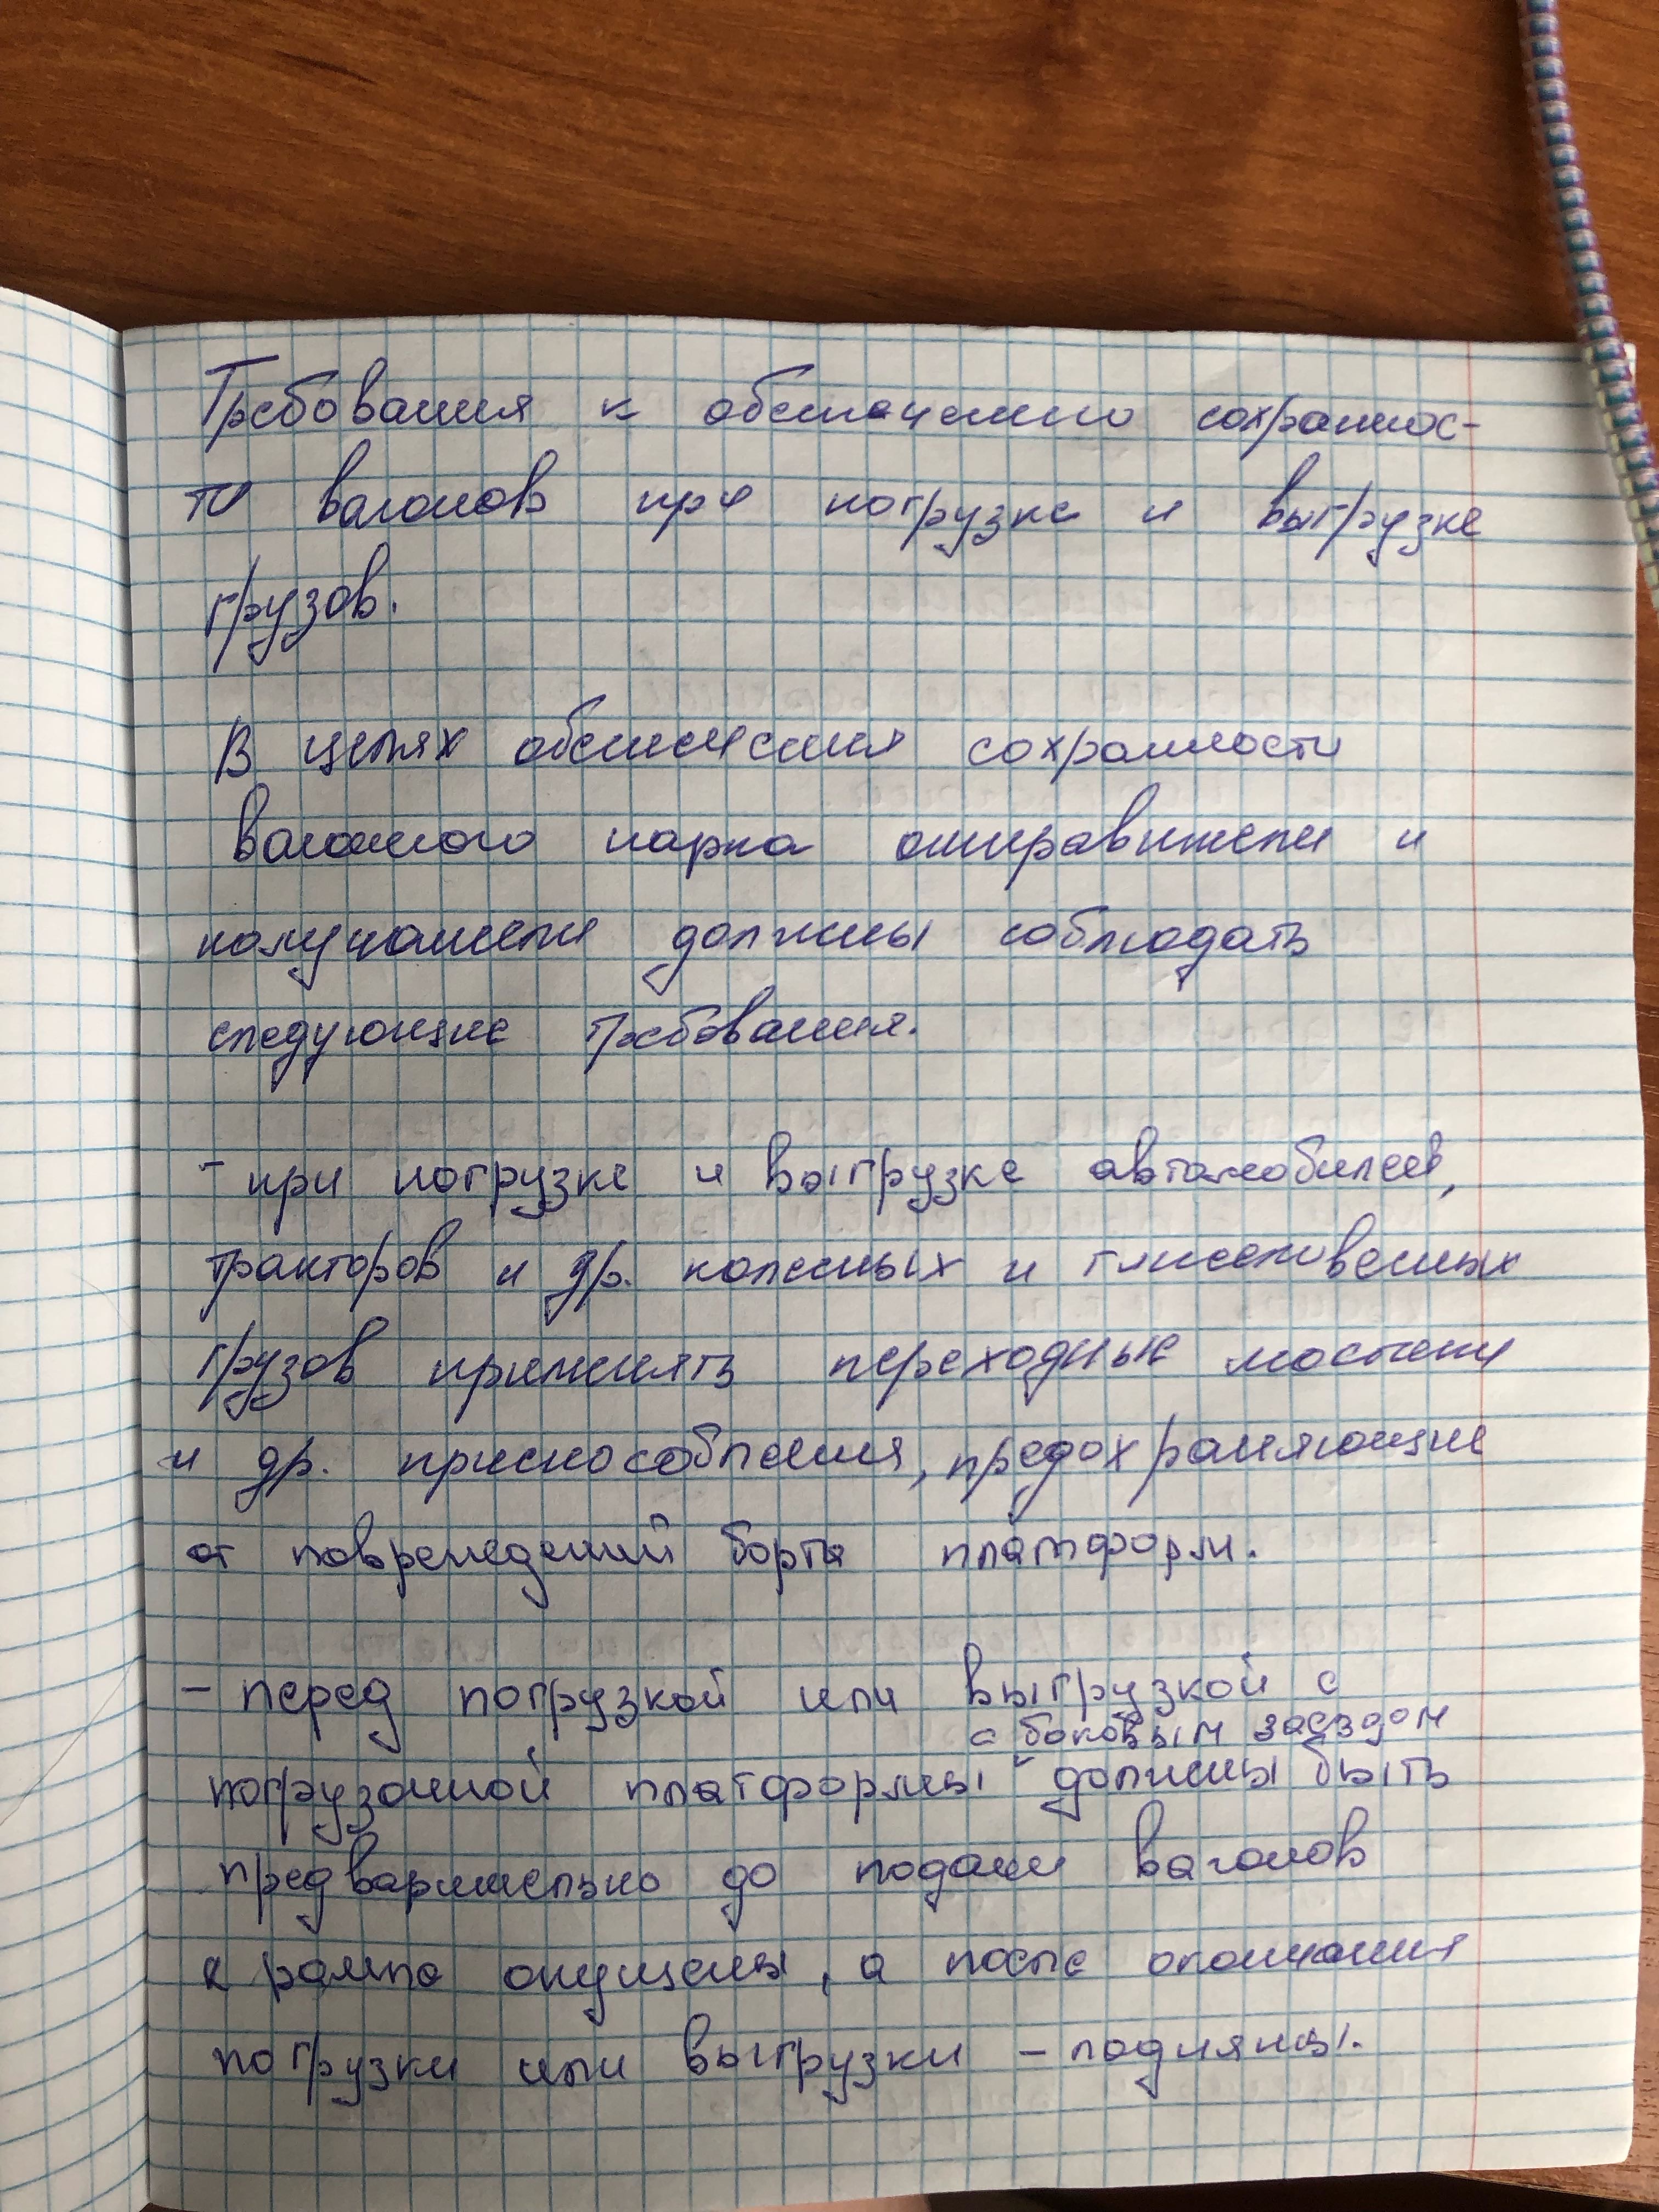 Требования к обеспечению сохраннос-
ти вагонов при погрузке и выгрузке
грузов.
В целях обеспечения сохранности
вагонного парка отправители и
получатели должны соблюдать
следующие требования.
- при погрузке и выгрузке автомобилей,
тракторов и др. колесных и гусеничных
грузов применять переходные мостики
и др. приспособления, предохраняющие
от повреждений борта платформ.
- перед погрузкой или выгрузкой с
с боковым заездом
погрузочной платформы должны быть
предварительно до подачи вагонов
к рампе опущены, а после окончания
погрузки или выгрузки - подняты.